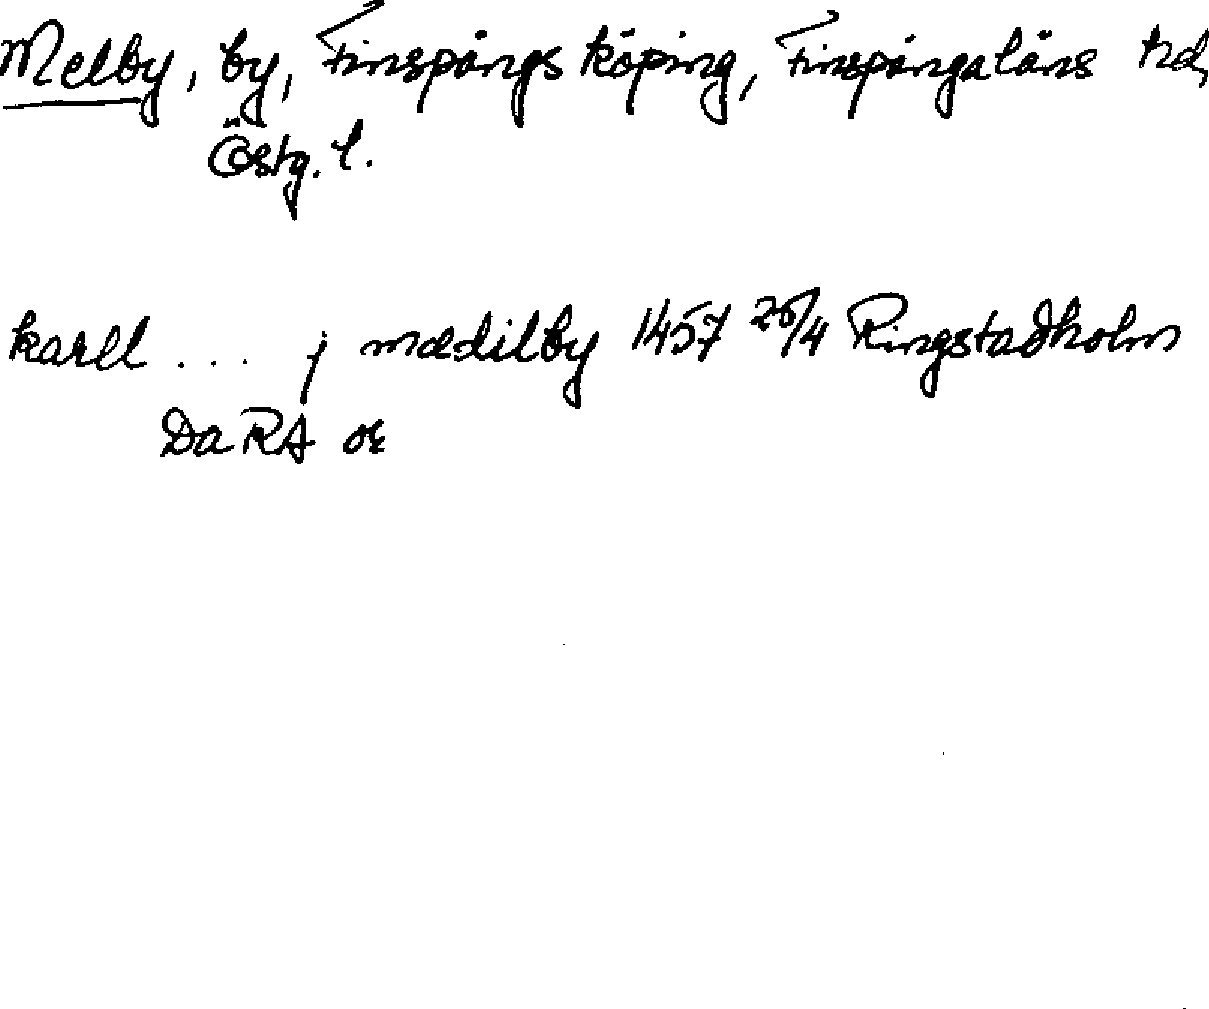 Melby, by, Finspångs köping, Finspångaläns hd,
Östg. l.
karll ... j mædilby 1457 25/4 Ringstadholm
DaRA or